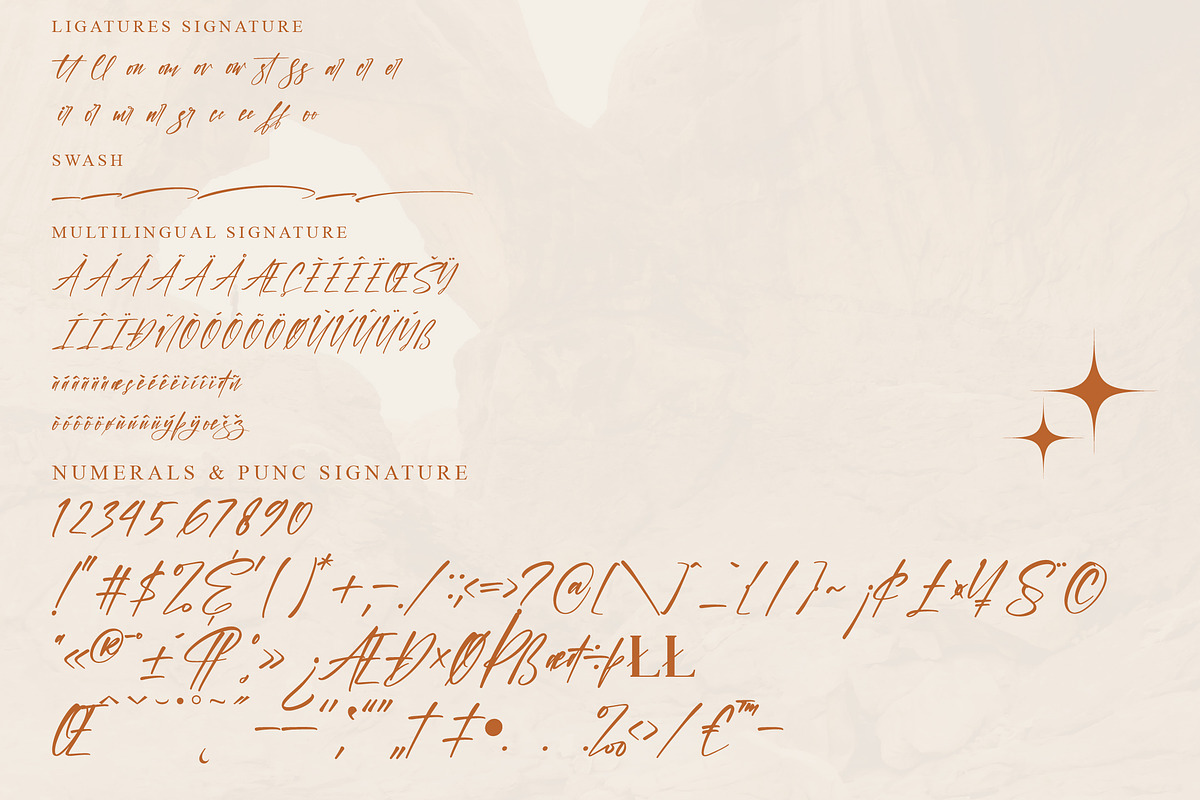 LIGATURES SIGNATURE
tt ll on om or ow st ss ar cr er
ir or ur nr sr cc ee ff oo
SWASH
MULTILINGUAL SIGNATURE
ÀÁÂÃÄÅÆÇÈÉÊËŒŠŸ
ÍÎÏÐÑÒÓÔÕÖØÙÚÛÜÝß
àáâãäåæçèéêëìíîïđñ
òóôõöøùúûüýþÿœšž
NUMERALS & PUNC SIGNATURE
1234567890
!"#$%&'()*+,-./:;<=>?@[\]^_`{|}~¡¢£¤¥§¨©
ª«®¯°±´¶·º»¿ÆÐ×ØÞßæđ÷þŁŁ
Œ^ˇ˘•°~˝˛——'‘“”„†‡•...‰‹›/€™−